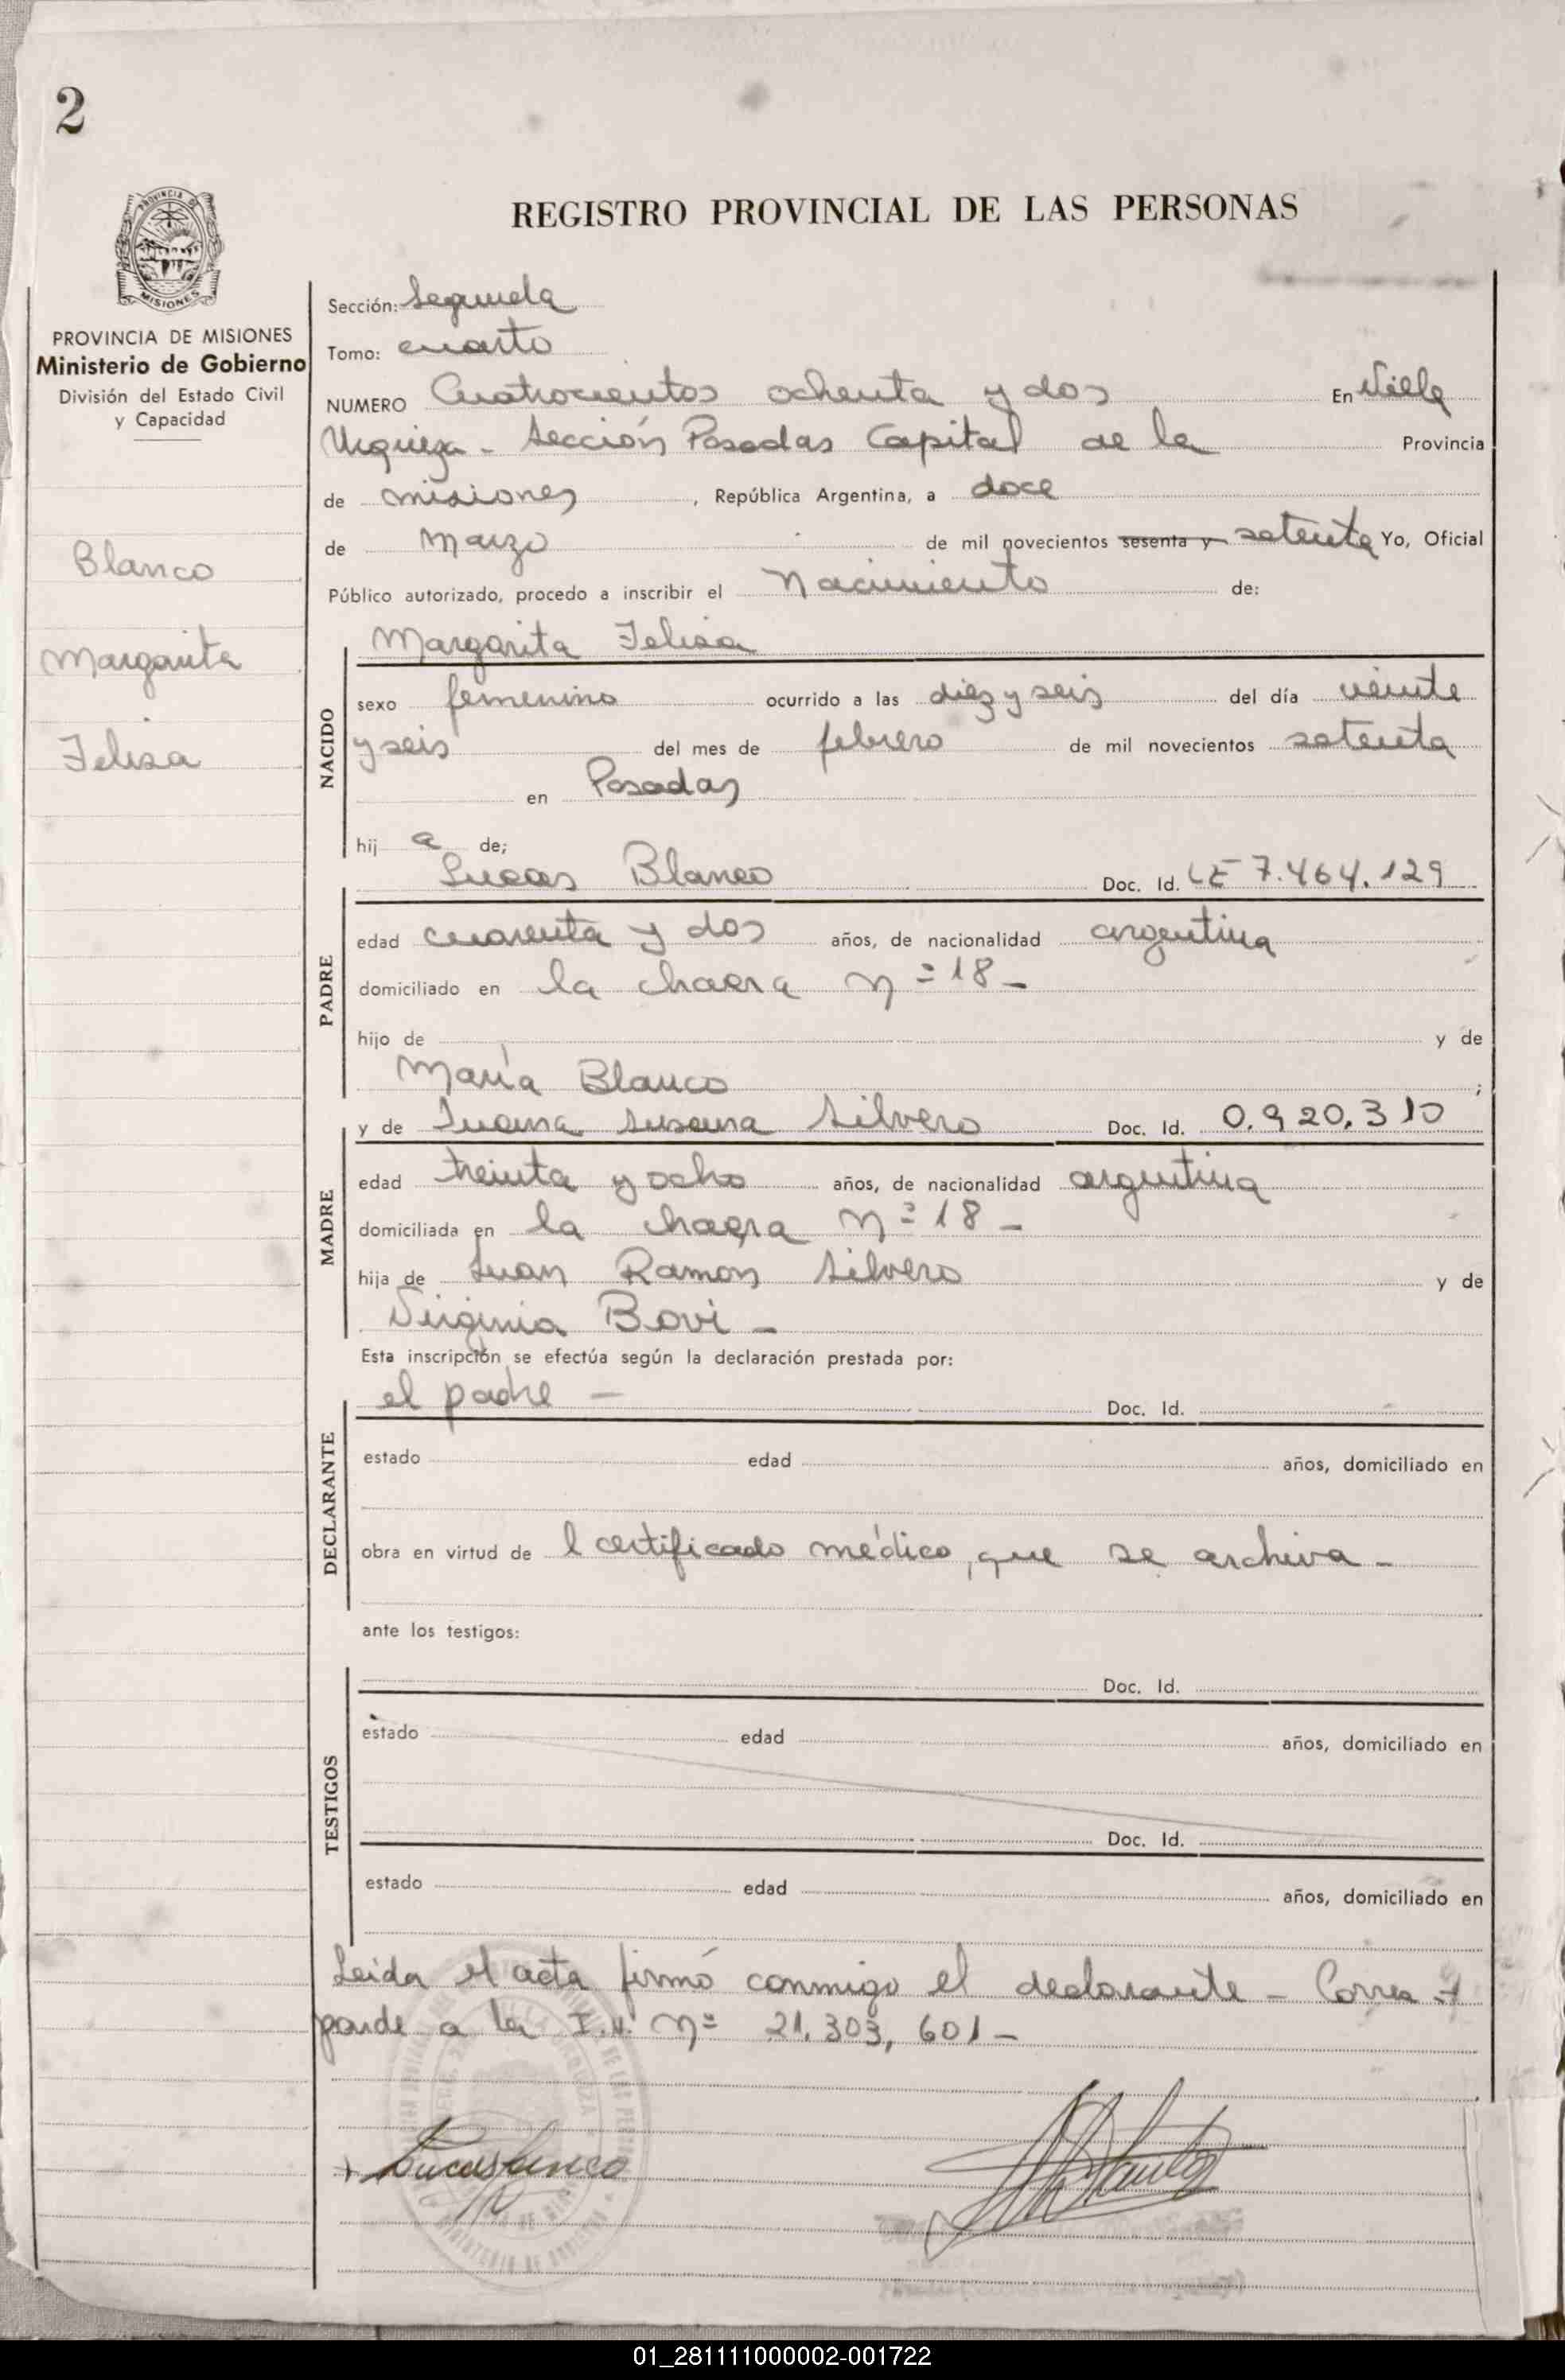 2
PROVINCIA DE MISIONES
Ministerio de Gobierno
División del Estado Civil
y Capacidad
Blanco
Margarita
Felisa
REGISTRO PROVINCIAL DE LAS PERSONAS
Sección: Segunda
Tomo: cuarto
NUMERO Cuatrocientos ochenta y dos En Villa
Urquiza - Sección Posadas Capital de la Provincia
de misiones, República Argentina, a doce
de marzo de mil novecientos sesenta y setenta Yo, Oficial
Público autorizado, procedo a inscribir el nacimiento de:
NACIDO
Margarita Felisa
sexo femenino ocurrido a las diez y seis del día veinte
y seis del mes de febrero de mil novecientos setenta
en Posadas
hij a de;
PADRE
Lucas Blanco Doc. Id. LE 7.464.129
edad cuarenta y dos años, de nacionalidad argentina
domiciliado en la chacra nº 18 -
hijo de y de
María Blanco ;
MADRE
y de Juana Susana Silvero Doc. Id. 0.920.310
edad treinta y ocho años, de nacionalidad argentina
domiciliada en la chacra nº 18 -
hija de Juan Ramon Silvero y de
Virginia Bovi -
Esta inscripción se efectúa según la declaración prestada por:
DECLARANTE
el padre - Doc. Id.
estado edad años, domiciliado en
obra en virtud de l certificado médico, que se archiva -
ante los testigos:
TESTIGOS
Doc. Id.
estado edad años, domiciliado en
Doc. Id.
estado edad años, domiciliado en
Leída el acta firmó conmigo el declarante - Corres -
ponde a la I.N. nº 21.303.601 -
Lucas Blanco
01_281111000002-001722